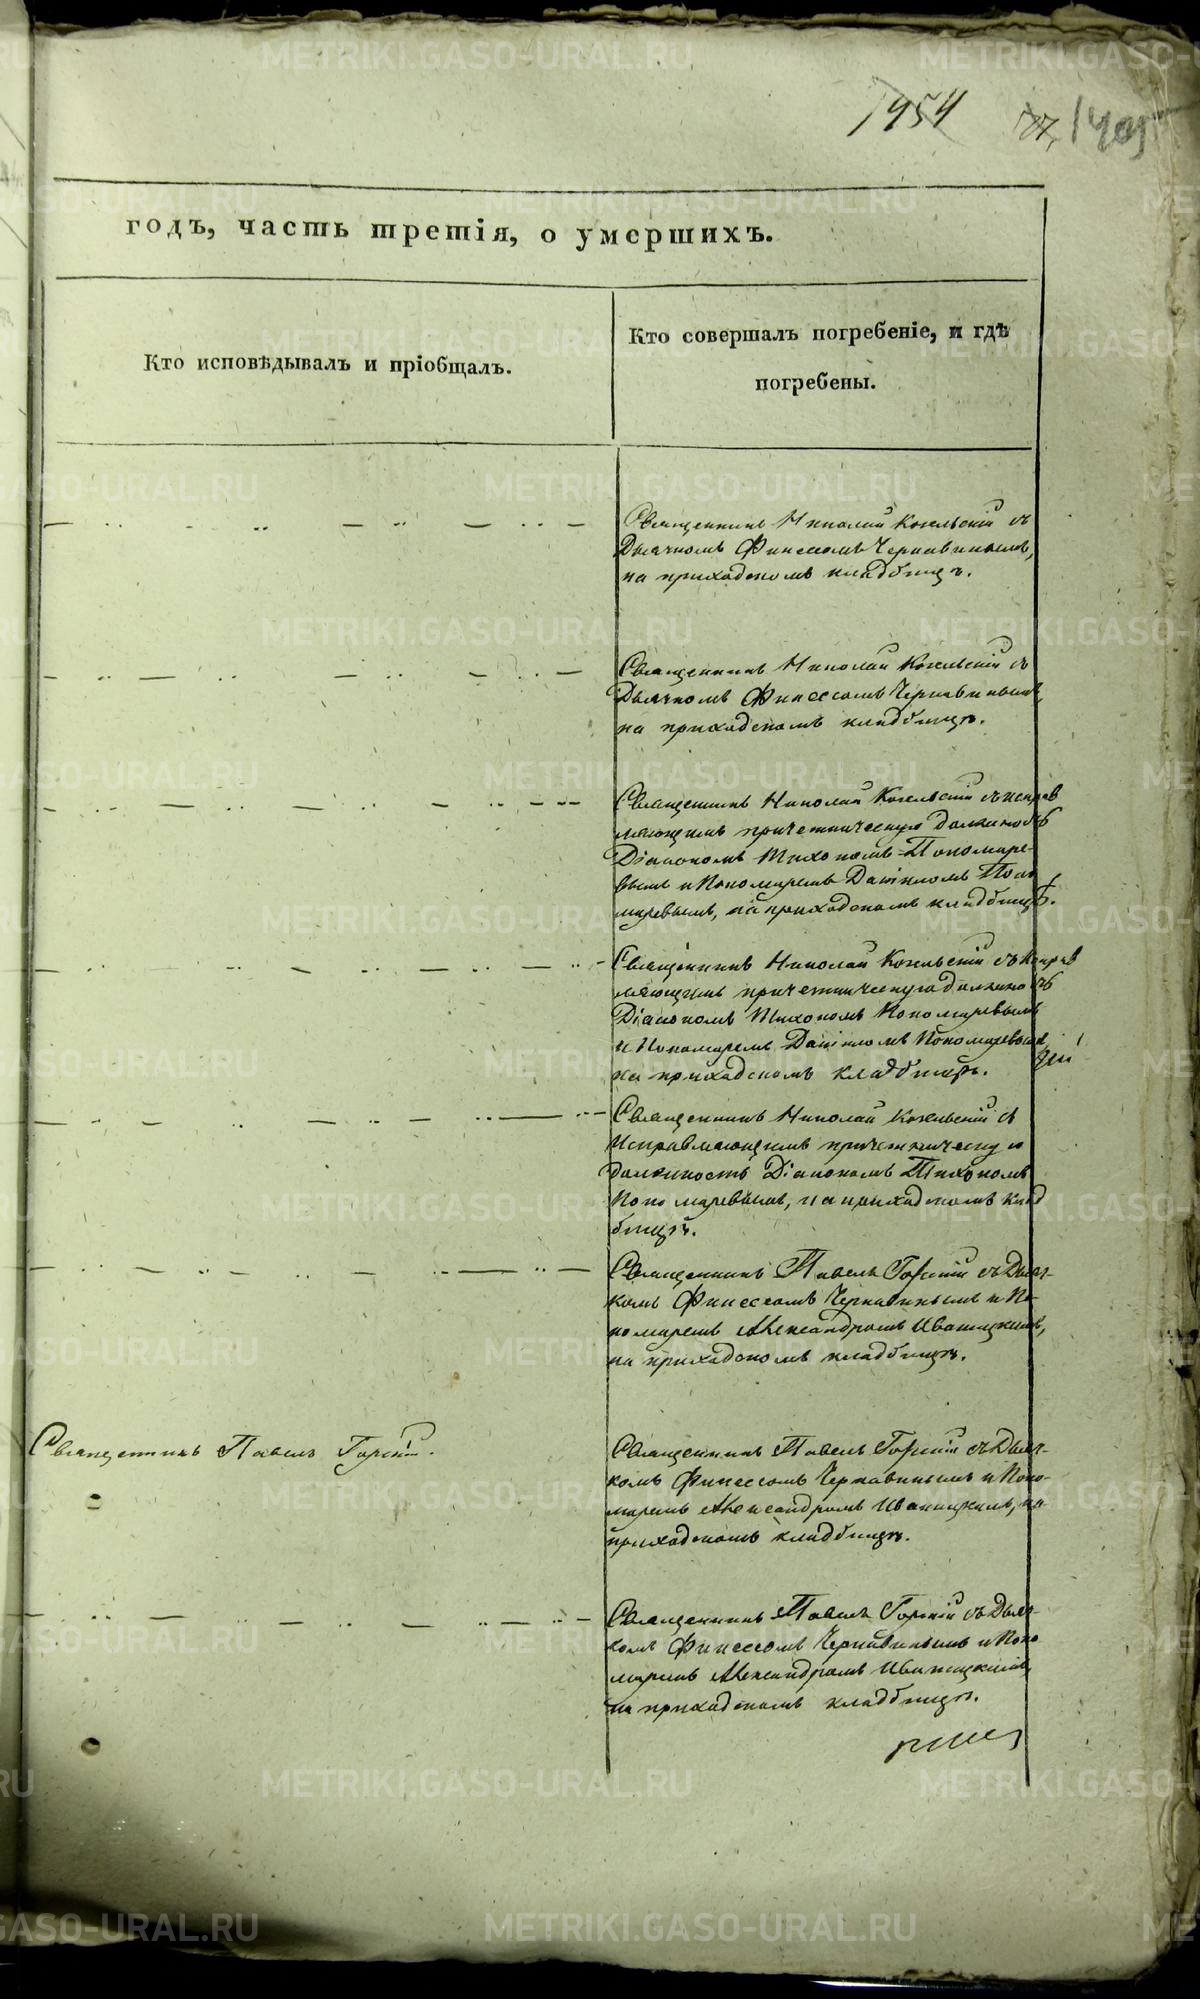 1454
1405
годъ, часть третія, о умершихъ.
Кто исповѣдывалъ и пріобщалъ.
Кто совершалъ погребеніе, и гдѣ
погребены.
Священникъ Николай Кокельскій съ
Дьячкомъ Финеесомъ Чернавинымъ,
на приходскомъ кладбищѣ.
Священникъ Николай Кокельскій съ
Дьячкомъ Финеесомъ Чернавинымъ,
на приходскомъ кладбищѣ.
Священникъ Николай Кокельскій съ исправ
ляющимъ причетническую должность
Діакономъ Тихономъ Пономаре-
вымъ и Пономаремъ Даніиломъ Поно
маревымъ, на приходскомъ кладбищѣ.
Священникъ Николай Кокельскій съ исправ
ляющимъ причетническую должность
Діакономъ Тихономъ Пономаревымъ
и Пономаремъ Даніиломъ Пономаревымъ
на приходскомъ кладбищѣ.
Священникъ Николай Кокельскій съ
исправляющимъ причетническую
должность Діакономъ Тихономъ
Пономаревымъ, на приходскомъ клад
бищѣ.
Священникъ Павелъ Горскій съ Дьяч-
комъ Финеесомъ Чернавинымъ и По-
номаремъ Александромъ Иваницкимъ,
на приходскомъ кладбищѣ.
Священникъ Павелъ Горскій.
Священникъ Павелъ Горскій съ Дьяч-
комъ Финеесомъ Чернавинымъ и Поно-
маремъ Александромъ Иваницкимъ, на
приходскомъ кладбищѣ.
Священникъ Павелъ Горскій съ Дьяч-
комъ Финеесомъ Чернавинымъ и Поно
маремъ Александромъ Иваницкимъ,
на приходскомъ кладбищѣ.